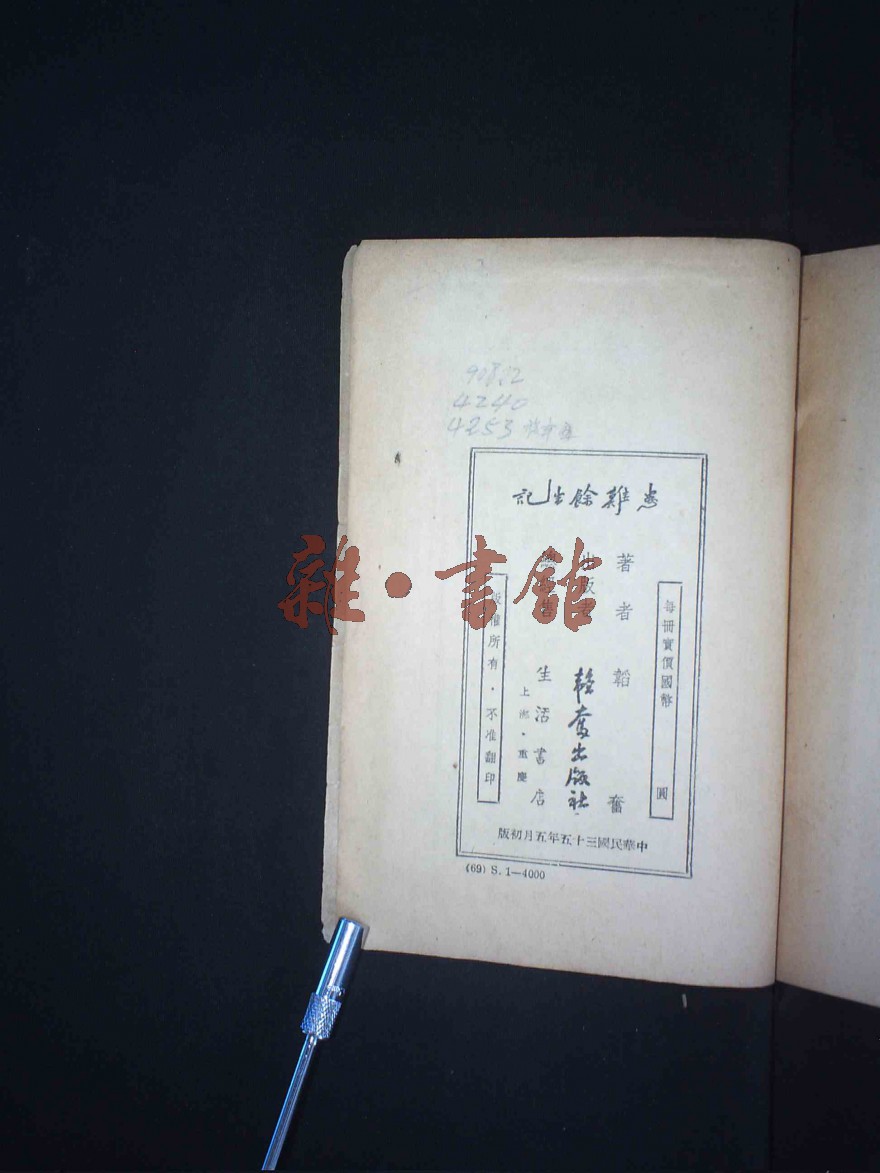 90812
4240
4253
患難餘生記
每冊實價國幣 圓
著者 韜奮
出版者 韜奮出版社
生活書店
上海・重慶
版權所有，不准翻印
中華民國三十五年五月初版
(69) S. 1—4000
雜・書館